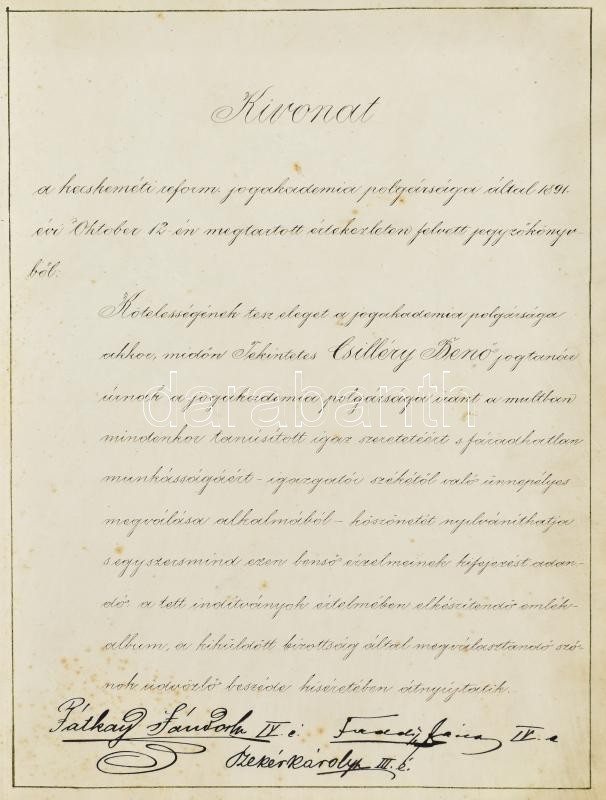 Kivonat
a kecskeméti reform. jogakademia polgársága által 1891.
évi Oktober 12-én megtartott értekezleten felvett jegyzőkönyv-
ből.
Kötelességének tesz eleget a jogakademia polgársága
akkor, midőn Tekintetes Csilléry Benő jogtanár
úrnak a jogakademia polgársága iránt a multban
mindenkor tanúsitott igaz szeretetéért s fáradhatlan
munkásságáért - igazgatói székétől való ünnepélyes
megválása alkalmából - köszönetét nyilváníthatja
s egyszersmind ezen benső érzelmeinek kifejezést adan-
dó a tett inditványok értelmében elkészitendő emlék-
album, a kiküldött bizottság által megválasztandó szó-
nok üdvözlő beszéde kiséretében átnyújtatik.
Pátkay Sándor IV é. János IV. é
Szekér Károly III. é.
darabanth